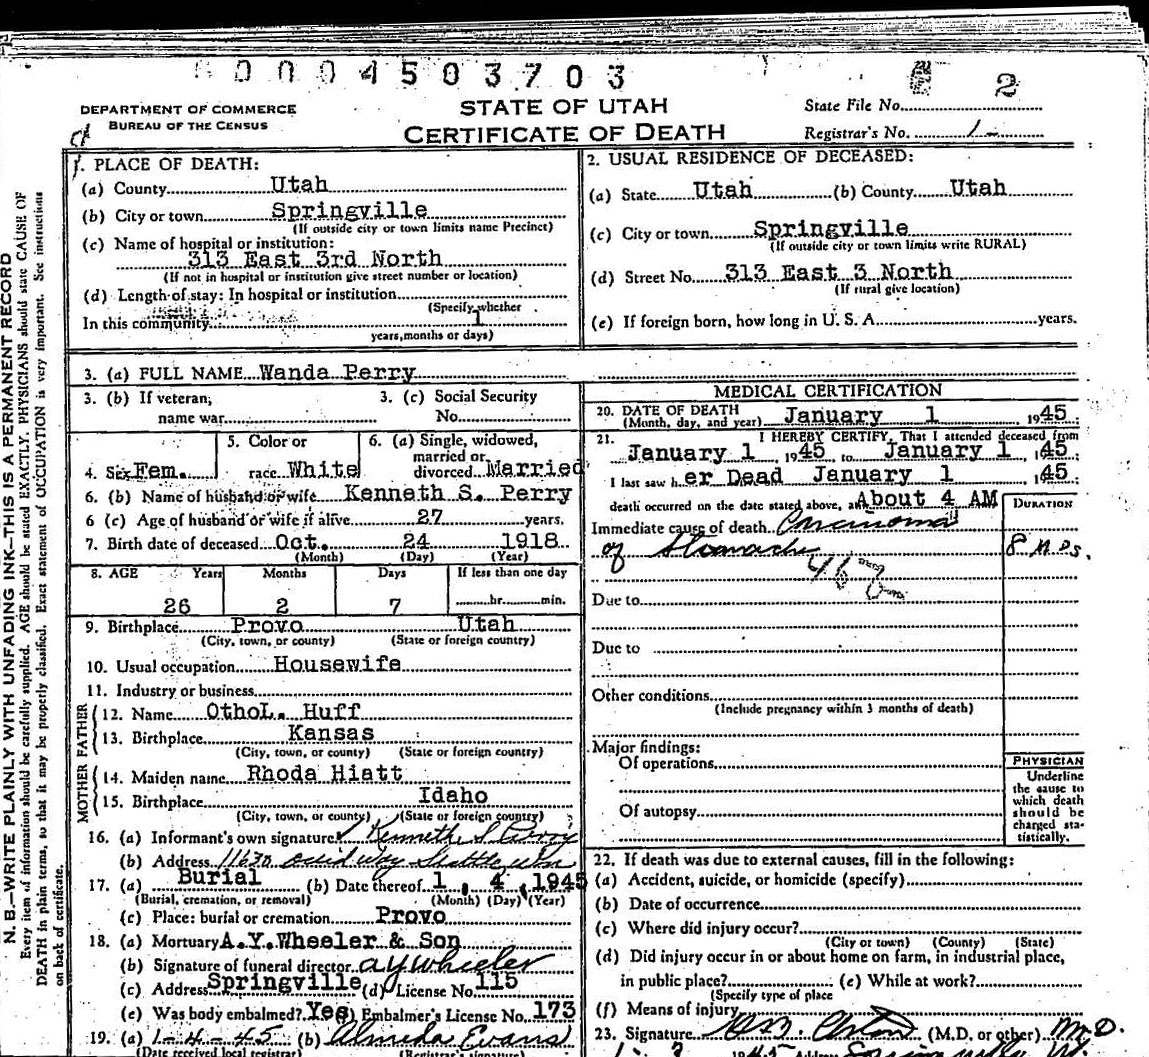 0004503703
DEPARTMENT OF COMMERCE
BUREAU OF THE CENSUS
STATE OF UTAH
CERTIFICATE OF DEATH
State File No. 2
Registrar's No. 1-
N. B.—WRITE PLAINLY WITH UNFADING INK—THIS IS A PERMANENT RECORD
Every item of information should be carefully supplied. AGE should be stated EXACTLY. PHYSICIANS should state CAUSE OF
DEATH in plain terms, so that it may be properly classified. Exact statement of OCCUPATION is very important. See instructions
on back of certificate.
1. PLACE OF DEATH:
(a) County Utah
(b) City or town Springville
(If outside city or town limits name Precinct)
(c) Name of hospital or institution:
313 East 3rd North
(If not in hospital or institution give street number or location)
(d) Length of stay: In hospital or institution
(Specify whether
In this community 1
years, months or days)
2. USUAL RESIDENCE OF DECEASED:
(a) State Utah (b) County Utah
(c) City or town Springville
(If outside city or town limits write RURAL)
(d) Street No. 313 East 3 North
(If rural give location)
(e) If foreign born, how long in U. S. A. years.
3. (a) FULL NAME Wanda Perry
3. (b) If veteran, 3. (c) Social Security
name war No.
5. Color or 6. (a) Single, widowed,
married or
4. Sex Fem. race White divorced Married
6. (b) Name of husband or wife Kenneth S. Perry
6 (c) Age of husband or wife if alive 27 years.
7. Birth date of deceased Oct. 24 1918
(Month) (Day) (Year)
8. AGE Years Months Days If less than one day
26 2 7 hr. min.
9. Birthplace Provo Utah
(City, town, or county) (State or foreign country)
10. Usual occupation Housewife
11. Industry or business
FATHER
12. Name OthoL. Huff
13. Birthplace Kansas
(City, town, or county) (State or foreign country)
MOTHER
14. Maiden name Rhoda Hiatt
15. Birthplace Idaho
(City, town, or county) (State or foreign country)
16. (a) Informant's own signature Kenneth S Perry
(b) Address way Seattle, Wn
17. (a) Burial (b) Date thereof 1, 4, 1945
(Burial, cremation, or removal) (Month) (Day) (Year)
(c) Place: burial or cremation Provo
18. (a) Mortuary A.Y.Wheeler & Son
(b) Signature of funeral director a y wheeler
(c) Address Springville (d) License No. 115
(e) Was body embalmed? Yes Embalmer's License No. 173
19. (a) 1-4-45 (b) Almeda Evans
(Date received local registrar) (Registrar's signature)
MEDICAL CERTIFICATION
20. DATE OF DEATH January 1 1945
(Month, day, and year)
21. I HEREBY CERTIFY, That I attended deceased from
January 1, 1945, to January 1, 1945;
I last saw her Dead January 1 1945
death occurred on the date stated above, at About 4 AM
DURATION
Immediate cause of death Carcinoma
of Stomach 8 Mos.
46
Due to
Due to
Other conditions
(Include pregnancy within 3 months of death)
Major findings:
Of operations
Of autopsy
PHYSICIAN
Underline
the cause to
which death
should be
charged sta-
tistically.
22. If death was due to external causes, fill in the following:
(a) Accident, suicide, or homicide (specify)
(b) Date of occurrence
(c) Where did injury occur?
(City or town) (County) (State)
(d) Did injury occur in or about home on farm, in industrial place,
in public place? (e) While at work?
(Specify type of place
(f) Means of injury
23. Signature (M.D. or other) M.D.